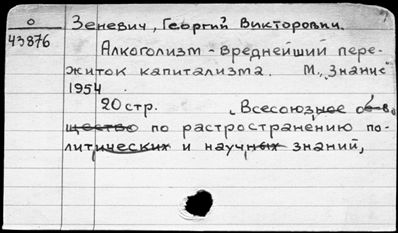 о Зеневич, Георгий Викторович.
43876
Алкоголизм - вреднейший пере-
житок капитализма. М., "Знание"
1954
20 стр. (Всесоюзное об-в
щество по распространению по-
литических и научных знаний,